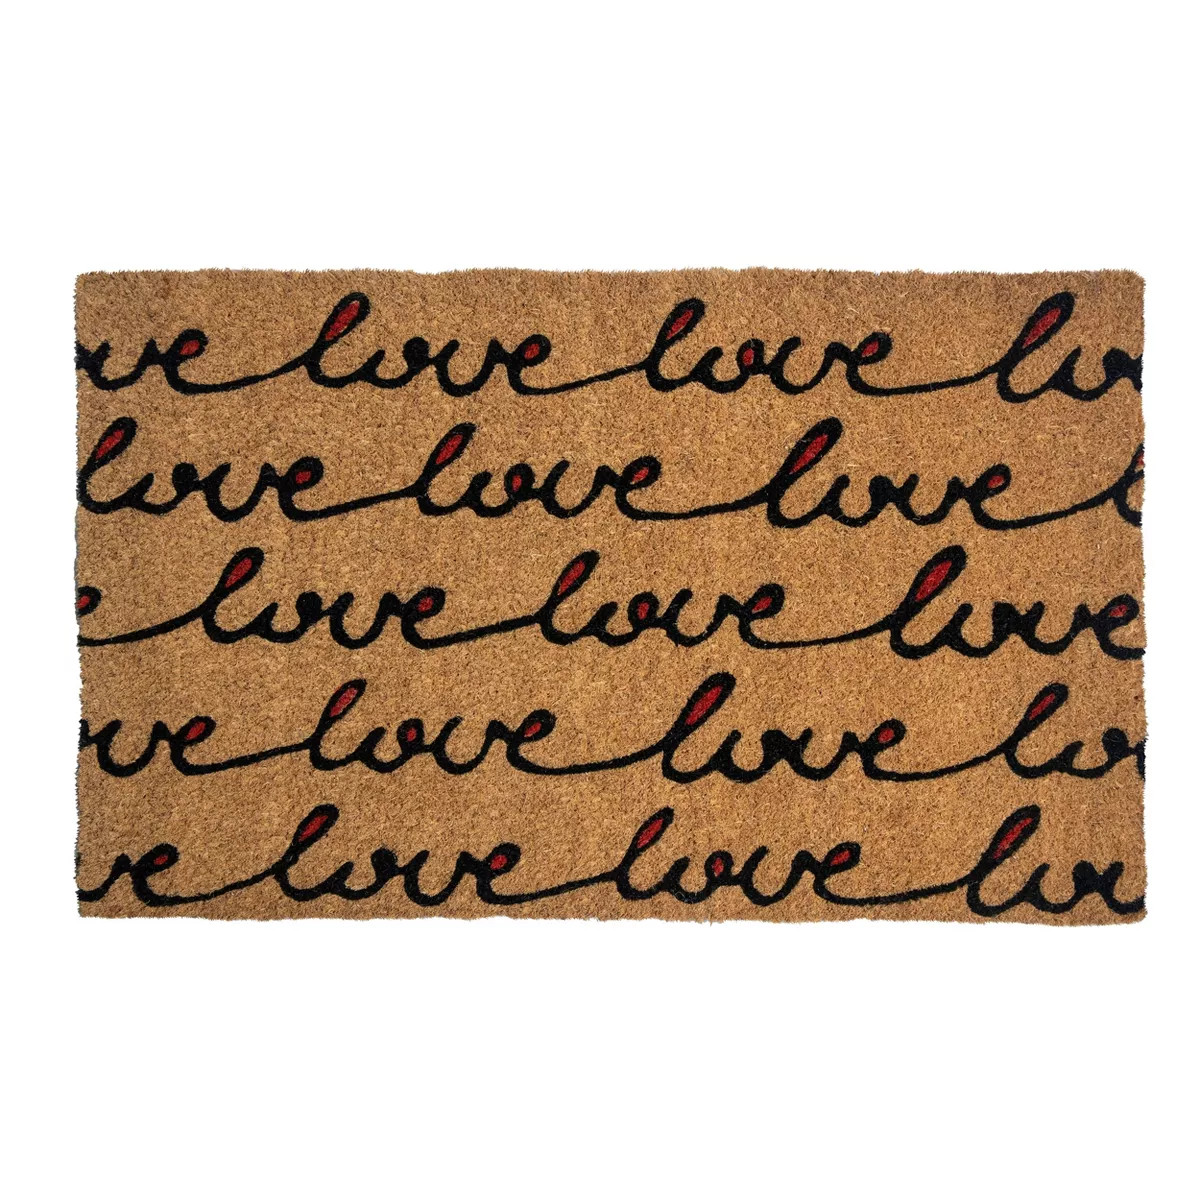 ove love love lo
love love love l
e love love love
ove love love lo
ve love love lov